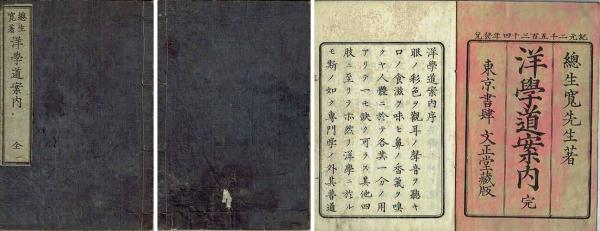 總生
寛著
洋學道案內
全
紀元二千五百三十四年發兌
總生寛先生著
洋學道案內 完
東京書肆 文正堂藏版
洋學道案内序
眼ノ彩色ヲ觀耳ノ聲音ヲ聽キ
口ノ食滋ヲ味ヒ鼻ノ香氣ヲ嗅
クヤ人體ニ於テ各其一分ノ用
アリテ一モ缺ク可ラス其他四
肢ニ至リテ亦然リ洋學ニ於ル
モ斯ノ如ク專門學ノ外其普道